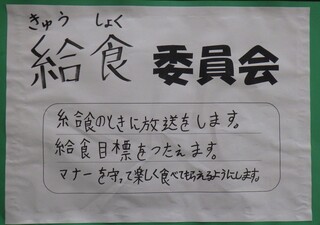 きゅう しょく
給食 委員会
給食のときに放送をします。
給食目標をつたえます。
マナーを守って楽しく食べてもらえるようにします。